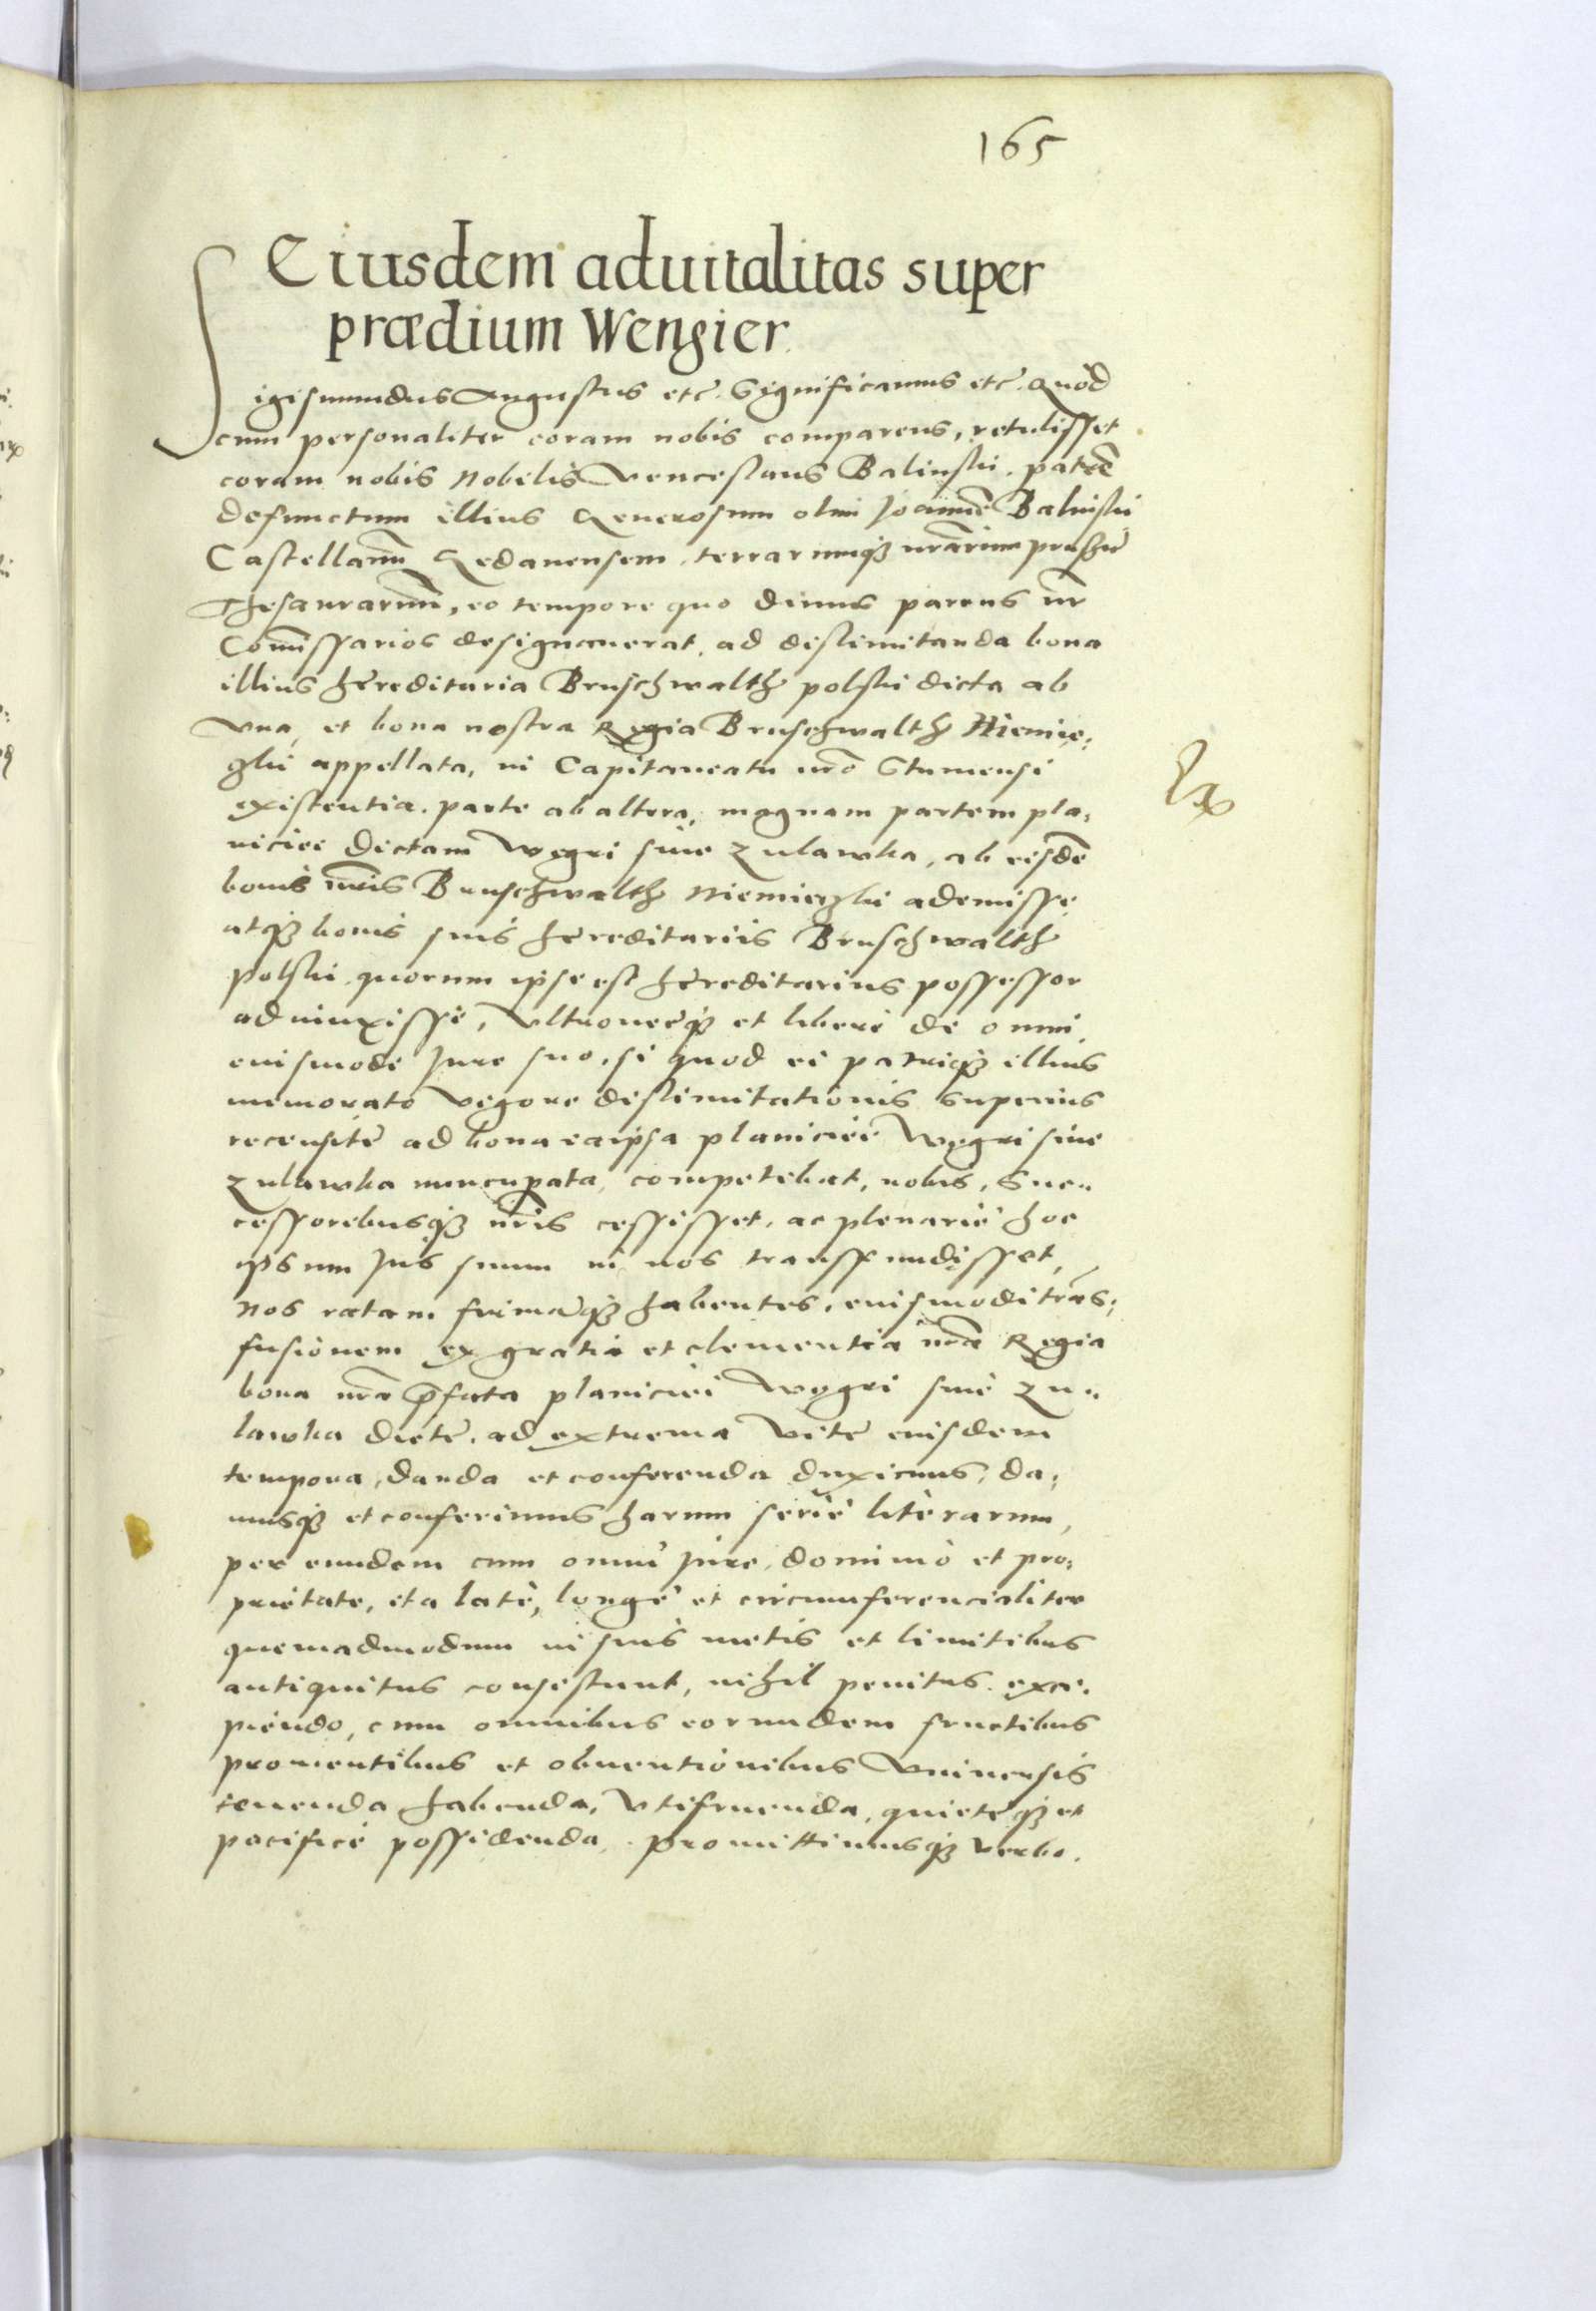 165
Eiusdem aduitalitas super
prædium Wengier
Sigismundus Augustus etc̃. Significamus etc̃. Quòd
cum personaliter coram nobis comparens, retulisset
coram nobis Nobilis Venceslaus Balinski. patrẽ
defunctum illius Generosum olim Joannẽ Balinski
Castellanũ Gedanensem, terrarumq̃ nrãrum prussie
Thesaurariũ, eo tempore quo diuus parens nr̃
Com̃issarios designauerat, ad dislimitanda bona
illius hereditaria Bruschwalth polski dicta ab
vna, et bona nostra Regia Bruschwalth Niemie,
zki appellata, in Capitaneatu nrõ Stumensi
existentia. parte ab altera, magnam partem pla,
niciei dictam Wegri siue Zulawka, ab eisdẽ
bonis nrĩs Bruschwalth Niemieczki ademisse,
atq̃ bonis suis hereditariis Bruschwalth
polski quorum ipse est hereditarius possessor
adiunxisse, vltroneeq̃ et liberè de omni
euismodi Jure suo, si quod ei patriq̃ illius
memorato vigore dislimitationis superius
recensite ad bona eaipsa planiciei Wegri siue
Zulawka nuncupata, competebat, nobis, Suc„
cessoribusq̃ nrĩs cessisset, ac plenariè hoc
ipsum Jus suum in nos transfundisset,
Nos ratam firmãq̃ habentes, euismodi trãs,
fusionem ex gratia et clementia nrã Regia
bona nrã p̃fata planiciei Wegri siue Zu„
lawka dicte. ad extrema vite euisdem
tempora, danda et conferenda duximus, da,
musq̃ et conferimus harum serie literarum,
per eundem cum omni Jure, dominio et pro,
prietate, ita latè, longè et circumferencialiter
quemadmodum in suis metis et limitibus
antiquitus consistunt, nihil penitus exci,
piendo, cum omnibus eorundem fructibus
prouentibus et obuentionibus vniuersis
tenenda habenda, vtifruenda, quietèq̃ et
pacificè possidenda. promittimusq̃ verbo.